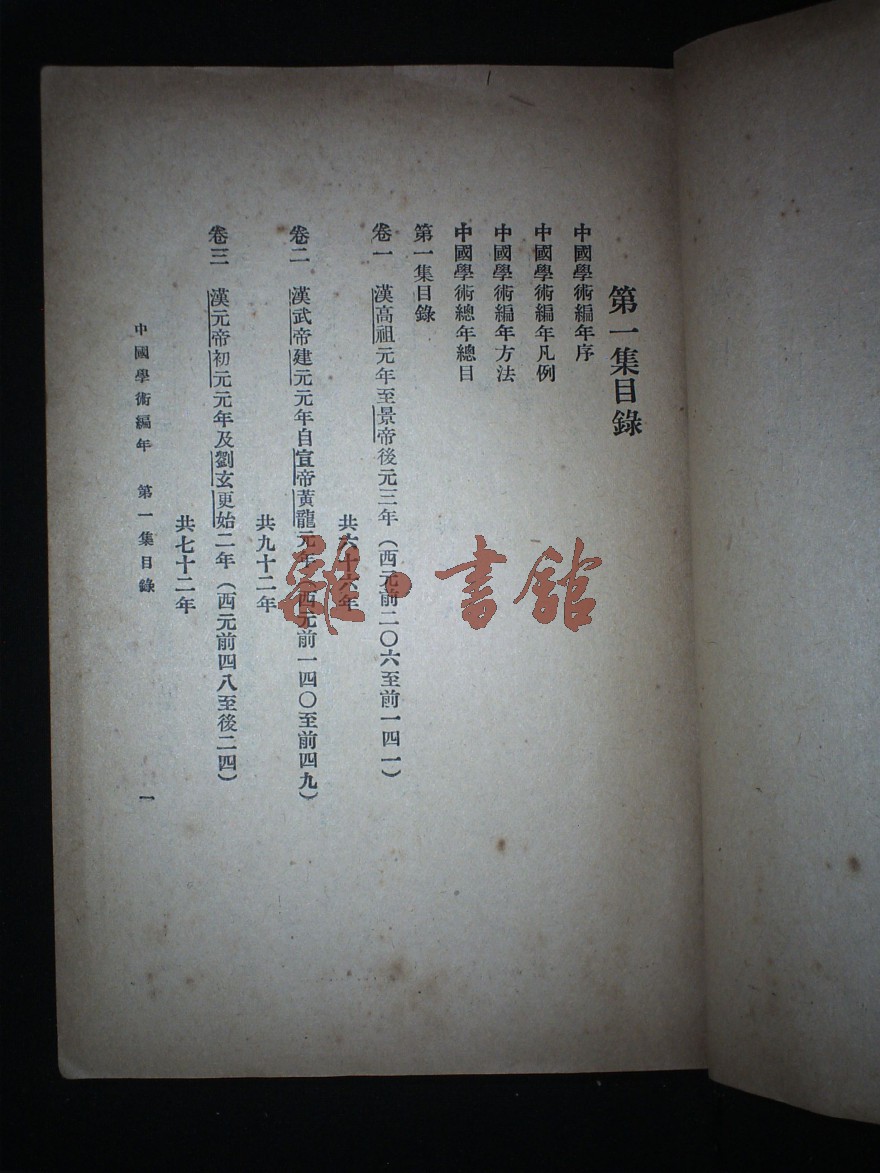 第一集目錄
中國學術編年序
中國學術編年凡例
中國學術編年方法
中國學術總年總目
第一集目錄
卷一 漢高祖元年至景帝後元三年（西元前二〇六至前一四一）
共六十六年
卷二 漢武帝建元元年自宣帝黃龍元年（西元前一四〇至前四九）
共九十二年
卷三 漢元帝初元元年及劉玄更始二年（西元前四八至後二四）
共七十二年
中國學術編年 第一集目錄 一
書館